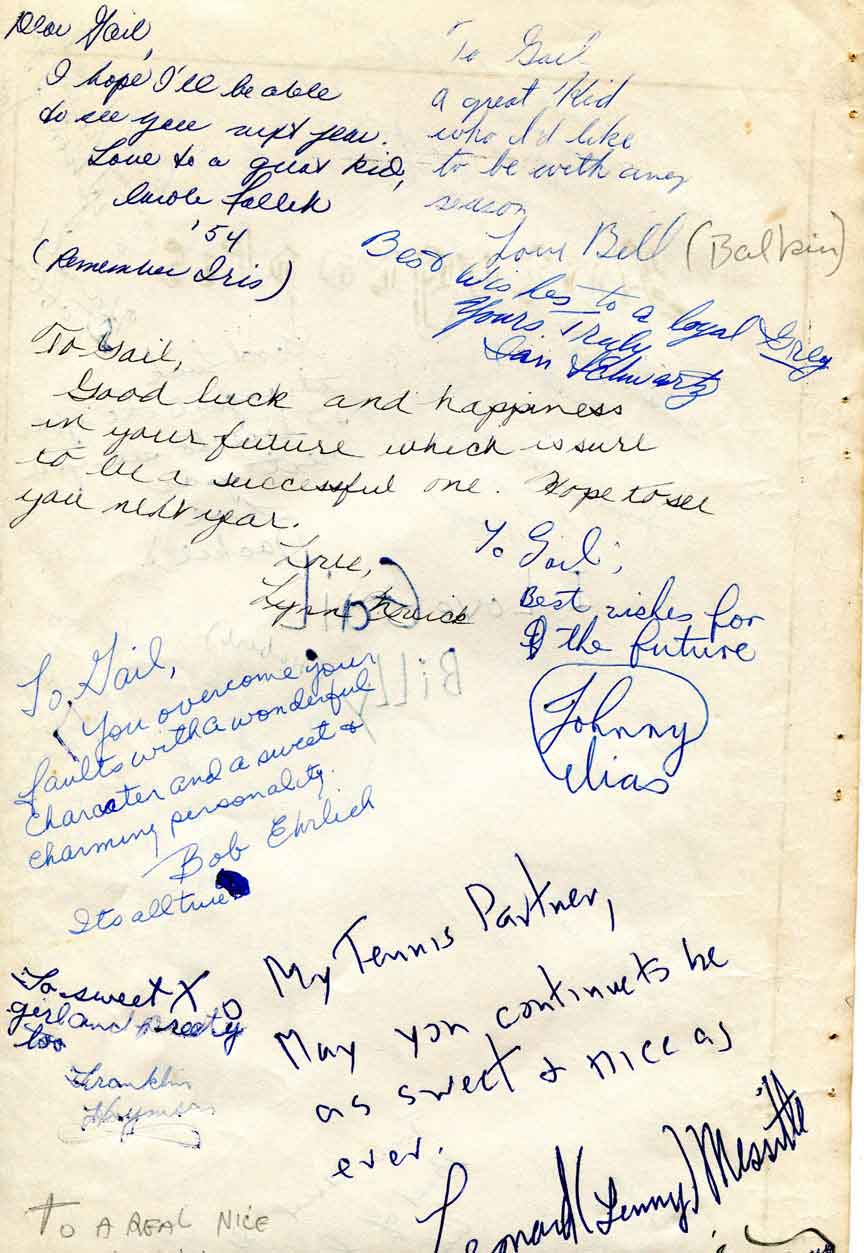 Dear Gail,
I hope I'll be able
to see you next year.
Love to a great kid,
Carole
'54
(Remember Iris)
To Gail
a great Kid
who I'd like
to be with any
season
Love Bill (Balkin)
Best
Wishes to a loyal Grey
Yours Truly
Ian Schwartz
To Gail,
Good luck and happiness
in your future which is sure
to be a successful one. Hope to see
you next year.
Love,
Lynn
To Gail,
Best wishes for
the future
Johnny
Elias
To Gail,
You overcome your
faults with a wonderful
character and a sweet &
charming personality.
Bob Ehrlich
Its all true
To sweet
girl and pretty
too
Franklin
My Tennis Partner,
May you continue to be
as sweet & nice as
ever.
Leonard (Lenny) Messitte
TO A REAL NICE